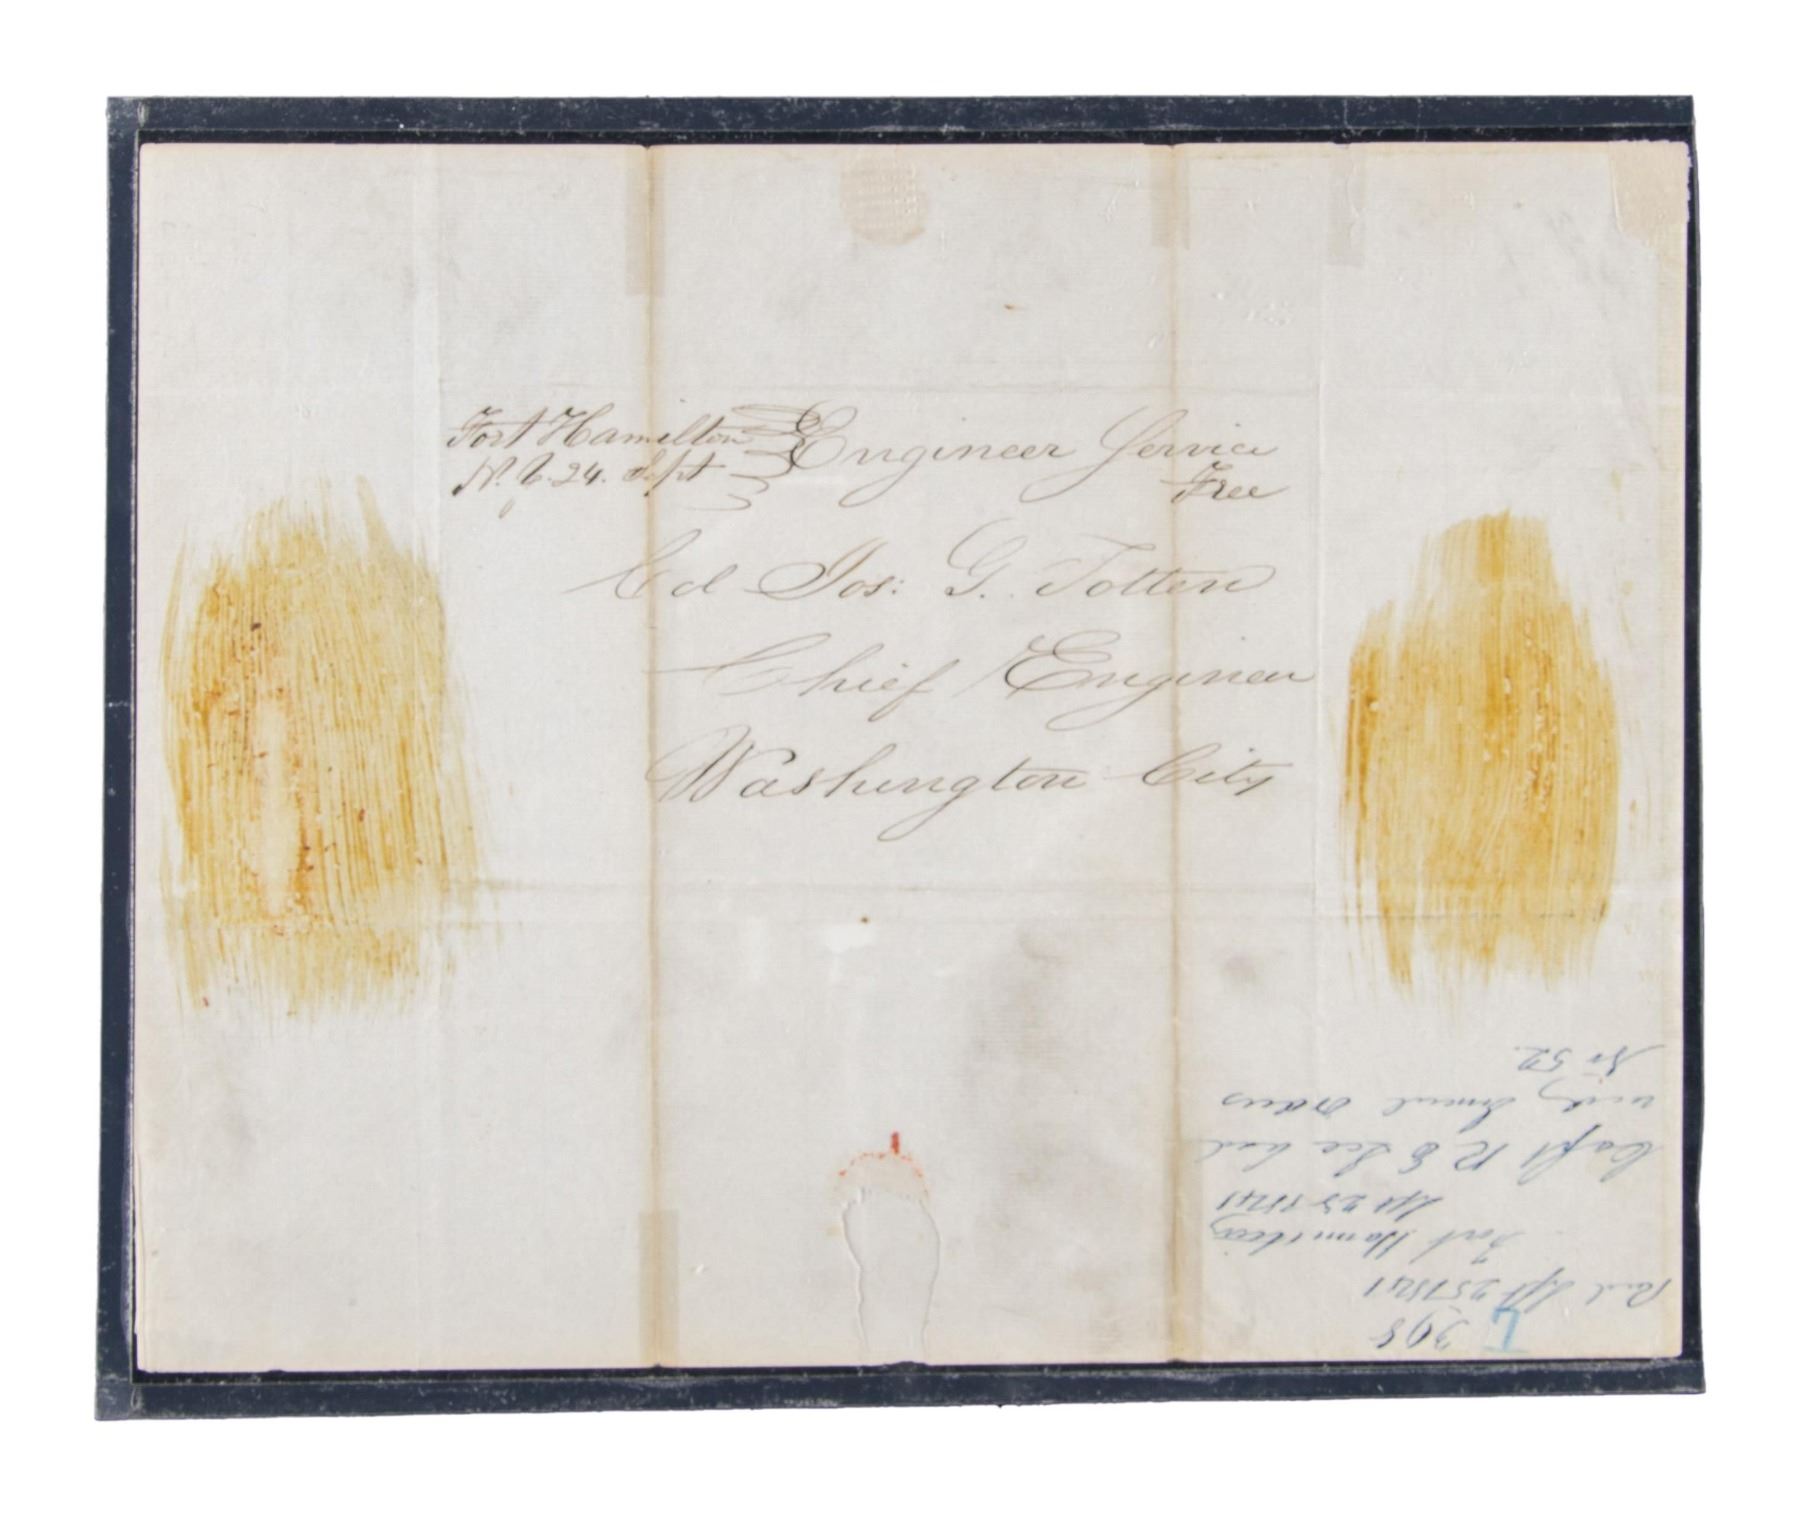 Fort Hamilton
N. Y. 24. Sept
Engineer Service
Free
Col Jos: G. Totten
Chief Engineer
Washington City
L 398
Recd Sept 25 1841
Fort Hamilton
Sept 25 1841
Capt R E Lee
No 52.